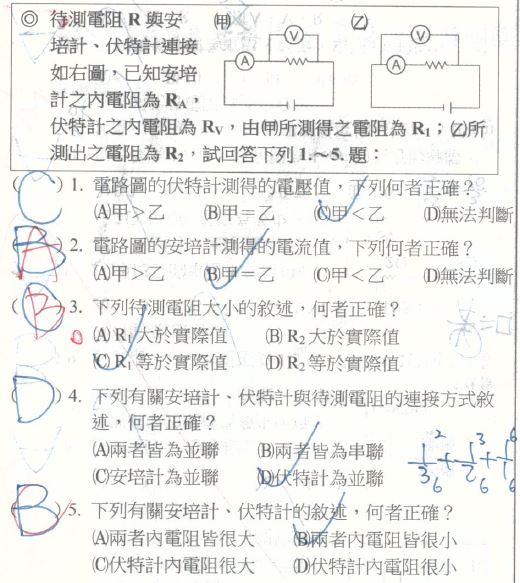 ◎ 待測電阻 R 與安 (甲) (乙)
V V
培計、伏特計連接
A A
如右圖，已知安培
計之內電阻為 RA，
伏特計之內電阻為 RV，由(甲)所測得之電阻為 R1；(乙)所
測出之電阻為 R2，試回答下列 1.～5. 題：
( C ) 1. 電路圖的伏特計測得的電壓值，下列何者正確？
(A)甲＞乙 (B)甲＝乙 (C)甲＜乙 (D)無法判斷
( B ) 2. 電路圖的安培計測得的電流值，下列何者正確？
(A)甲＞乙 (B)甲＝乙 (C)甲＜乙 (D)無法判斷
( B ) 3. 下列待測電阻大小的敘述，何者正確？
(A) R1 大於實際值 (B) R2 大於實際值
(C) R1 等於實際值 (D) R2 等於實際值
( D ) 4. 下列有關安培計、伏特計與待測電阻的連接方式敘
述，何者正確？
(A)兩者皆為並聯 (B)兩者皆為串聯
(C)安培計為並聯 (D)伏特計為並聯
( B ) 5. 下列有關安培計、伏特計的敘述，何者正確？
(A)兩者內電阻皆很大 (B)兩者內電阻皆很小
(C)伏特計內電阻很大 (D)伏特計內電阻很小